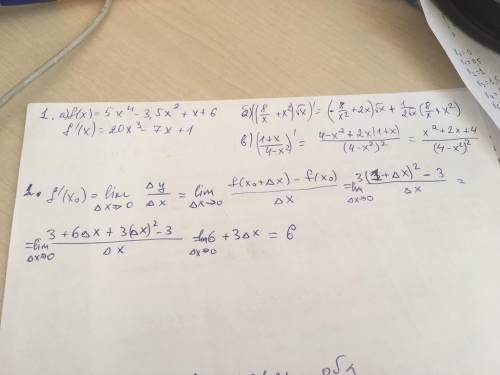 1. a) f(x) = 5x⁴ - 3,5x² + x + 6
f'(x) = 20x³ - 7x + 1
б) ((8/x + x²)√x)' = (-8/x² + 2x)√x + 1/(2√x) (8/x + x²)
в) ((1+x)/(4-x²))' = (4-x²+2x(1+x))/(4-x²)² = (x²+2x+4)/(4-x²)²
2. f'(x₀) = lim Δx→0 Δy/Δx = lim Δx→0 (f(x₀+Δx) - f(x₀))/Δx = lim Δx→0 (3(1+Δx)² - 3)/Δx =
= lim Δx→0 (3 + 6Δx + 3(Δx)² - 3)/Δx = lim Δx→0 6 + 3Δx = 6